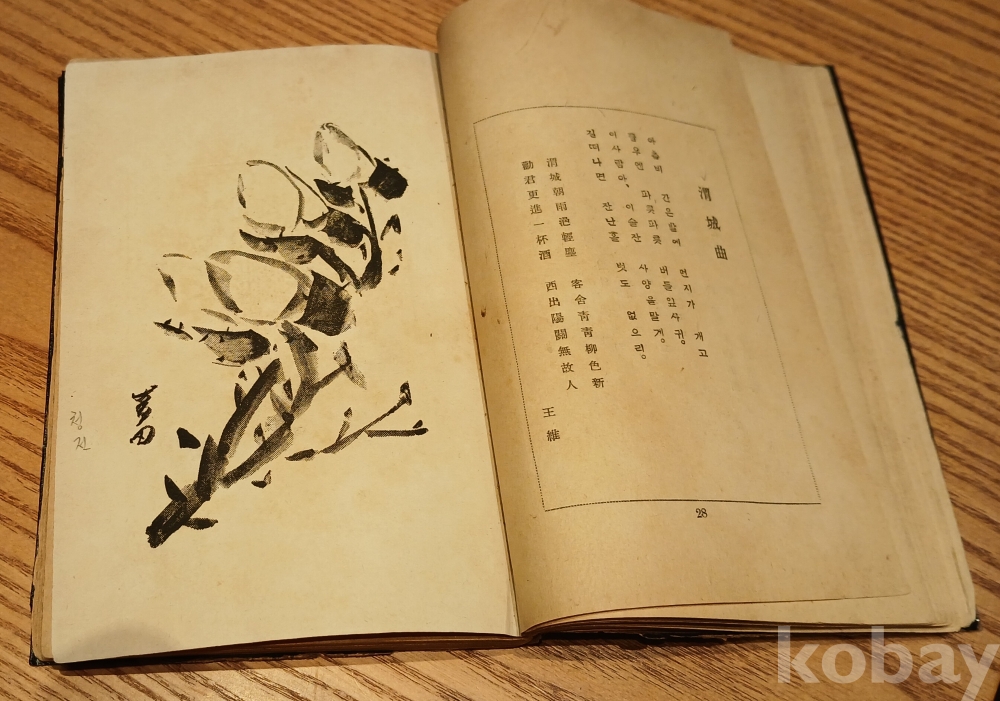 渭城曲
아츰비 먼지가 개고
파릇파릇 버들잎사귀。
이사람아, 이술잔 사양을말게。
길떠나면 잔난흘 벗도 없으리。
渭城朝雨浥輕塵 客舍靑靑柳色新
勸君更進一杯酒 西出陽關無故人
王維
28
청전
kobay